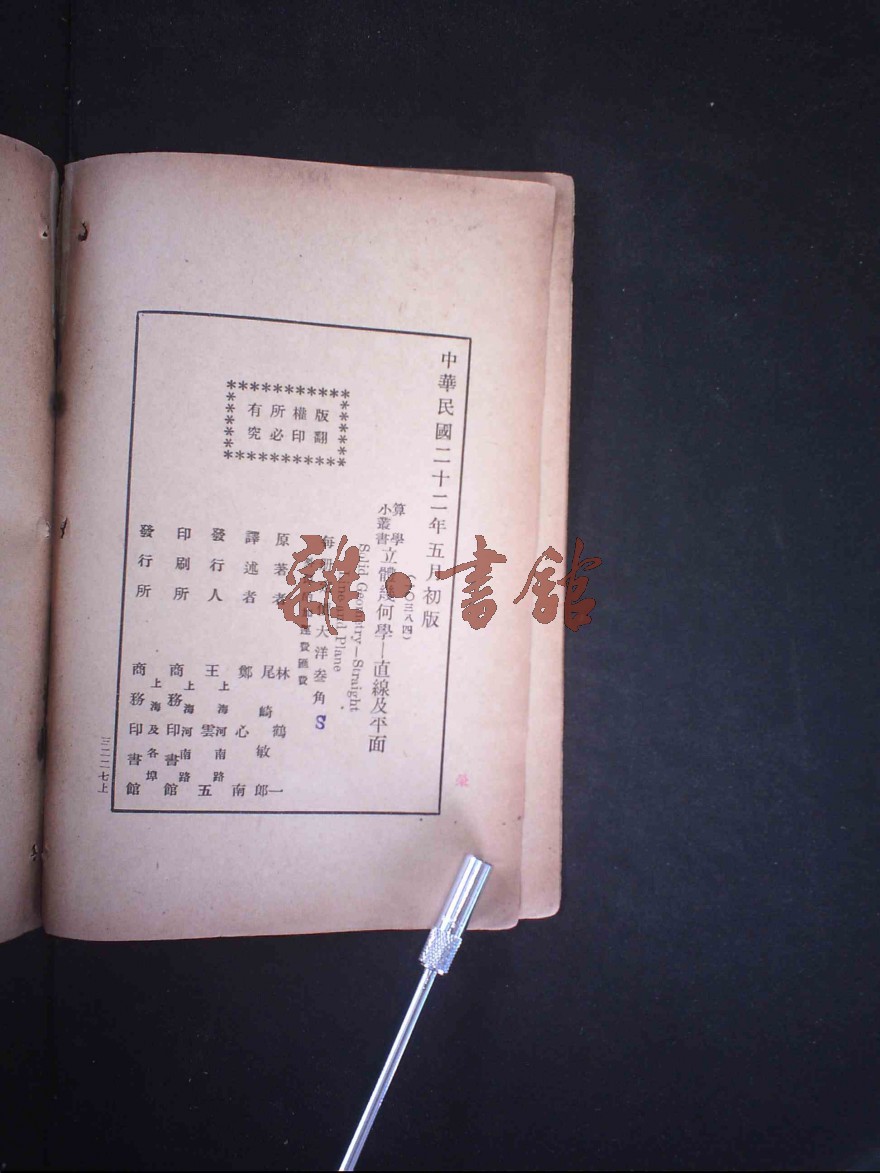 中華民國二十二年五月初版
(六〇三八四)
算學
小叢書
立體幾何學—直線及平面
Solid Geometry—Straight
Line and Plane
每冊 大洋叁角
S
運費匯費
版權所有
翻印必究
原著者 林鶴一
尾崎敏郎
譯述者 鄭心南
發行人 王雲五
上海河南路
印刷所 商務印書館
上海河南路
發行所 商務印書館
上海及各埠
三二二七上
雜·書館